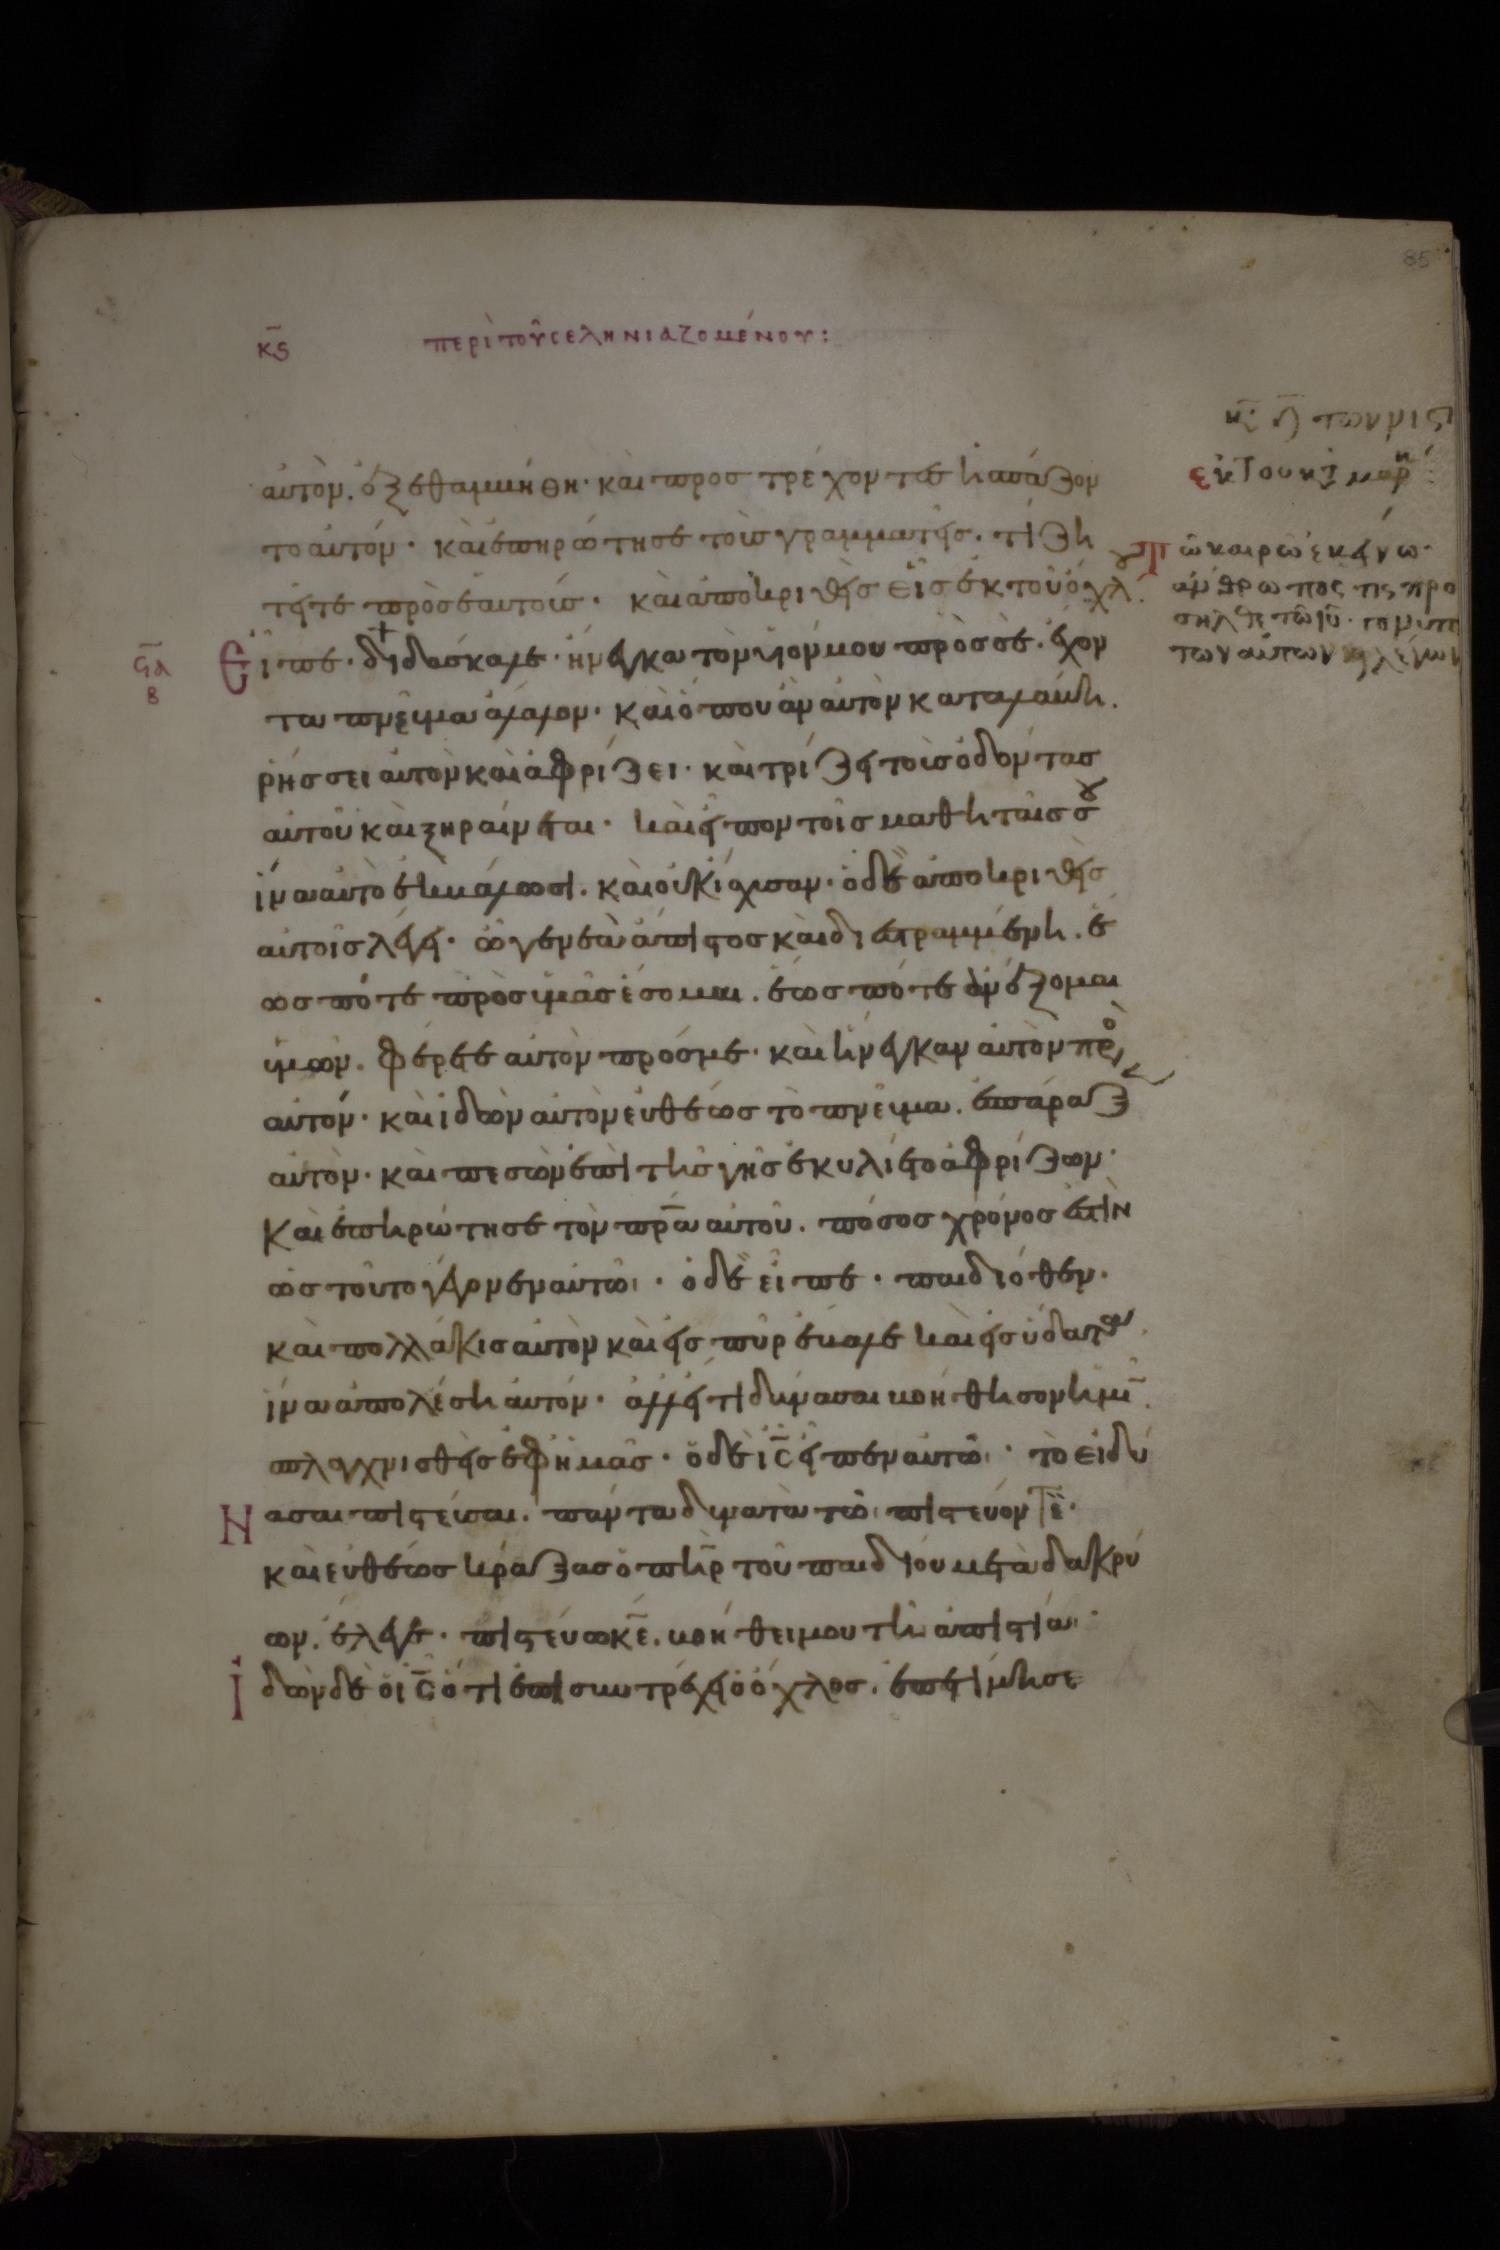 85
κϛ περὶ τοῦ σεληνιαζομένου:
αὐτὸν. ἐξεθαμβήθη· καὶ προστρέχοντες ἠσπάζον
το αὐτόν· καὶ ἐπηρώτησε τοὺς γραμματεῖς. τί ζη
τεῖτε πρὸς ἑαυτούς· καὶ ἀποκριθεὶς εἷς ἐκ τοῦ ὄχλ.
Εἶπε· διδάσκαλε· ἤνεγκα τὸν υἱόν μου πρὸς σὲ. ἔχον
τα πνεῦμα ἄλαλον· καὶ ὅπου ἂν αὐτὸν καταλάβη.
ῥήσσει αὐτὸν καὶ ἀφρίζει· καὶ τρίζει τοὺς ὀδόντας
αὐτοῦ καὶ ξηραίνεται· καὶ εἶπον τοῖς μαθηταῖς σου
ἵνα αὐτὸ ἐκβάλωσι. καὶ οὐκ ἴσχυσαν· ὁ δὲ ἀποκριθεὶς
αὐτοῖς λέγει· ὦ γενεὰ ἄπιστος καὶ διεστραμμένη. ἕ
ως πότε πρὸς ὑμᾶς ἔσομαι. ἕως πότε ἀνέξομαι
ὑμῶν. φέρετε αὐτὸν πρός με· καὶ ἤνεγκαν αὐτὸν πρὸ
αὐτόν· καὶ ἰδὼν αὐτὸν εὐθέως τὸ πνεῦμα. ἐσπάραξ
αὐτὸν· καὶ πεσὼν ἐπὶ τῆς γῆς ἐκυλίετο ἀφρίζων·
Καὶ ἐπηρώτησε τὸν πρα αὐτοῦ. πόσος χρόνος ἐστὶν
ὡς τοῦτο γέγονεν αὐτῶι· ὁ δὲ εἶπε· παιδιόθεν.
καὶ πολλάκις αὐτὸν καὶ εἰς πῦρ ἔβαλε καὶ εἰς ὕδατα
ἵνα ἀπολέση αὐτόν· ἀλλ' εἴ τι δύνασαι βοήθησον ἡμῖ
σπλαγχνισθεὶς ἐφ' ἡμᾶς· ὁ δὲ ις εἶπεν αὐτῶι· τὸ εἰ δύ
νασαι πιστεῦσαι. πάντα δυνατὰ τῶι πιστεύοντι·
καὶ εὐθέως κράξας ὁ πηρ τοῦ παιδίου μετὰ δακρύ
ων. ἔλεγε· πιστεύω κε. βοήθει μου τῆι ἀπιστίαι·
Ἰδὼν δὲ ὁ ις ὅτι ἐπισυντρέχει ὁ ὄχλος. ἐπετίμησε
ϛα
β
ἐκ τοῦ κτ μάρ
Τῶ καιρῶ ἐκείνω·
ἄνθρωπός τις προ
σῆλθε τῶ ιυ·